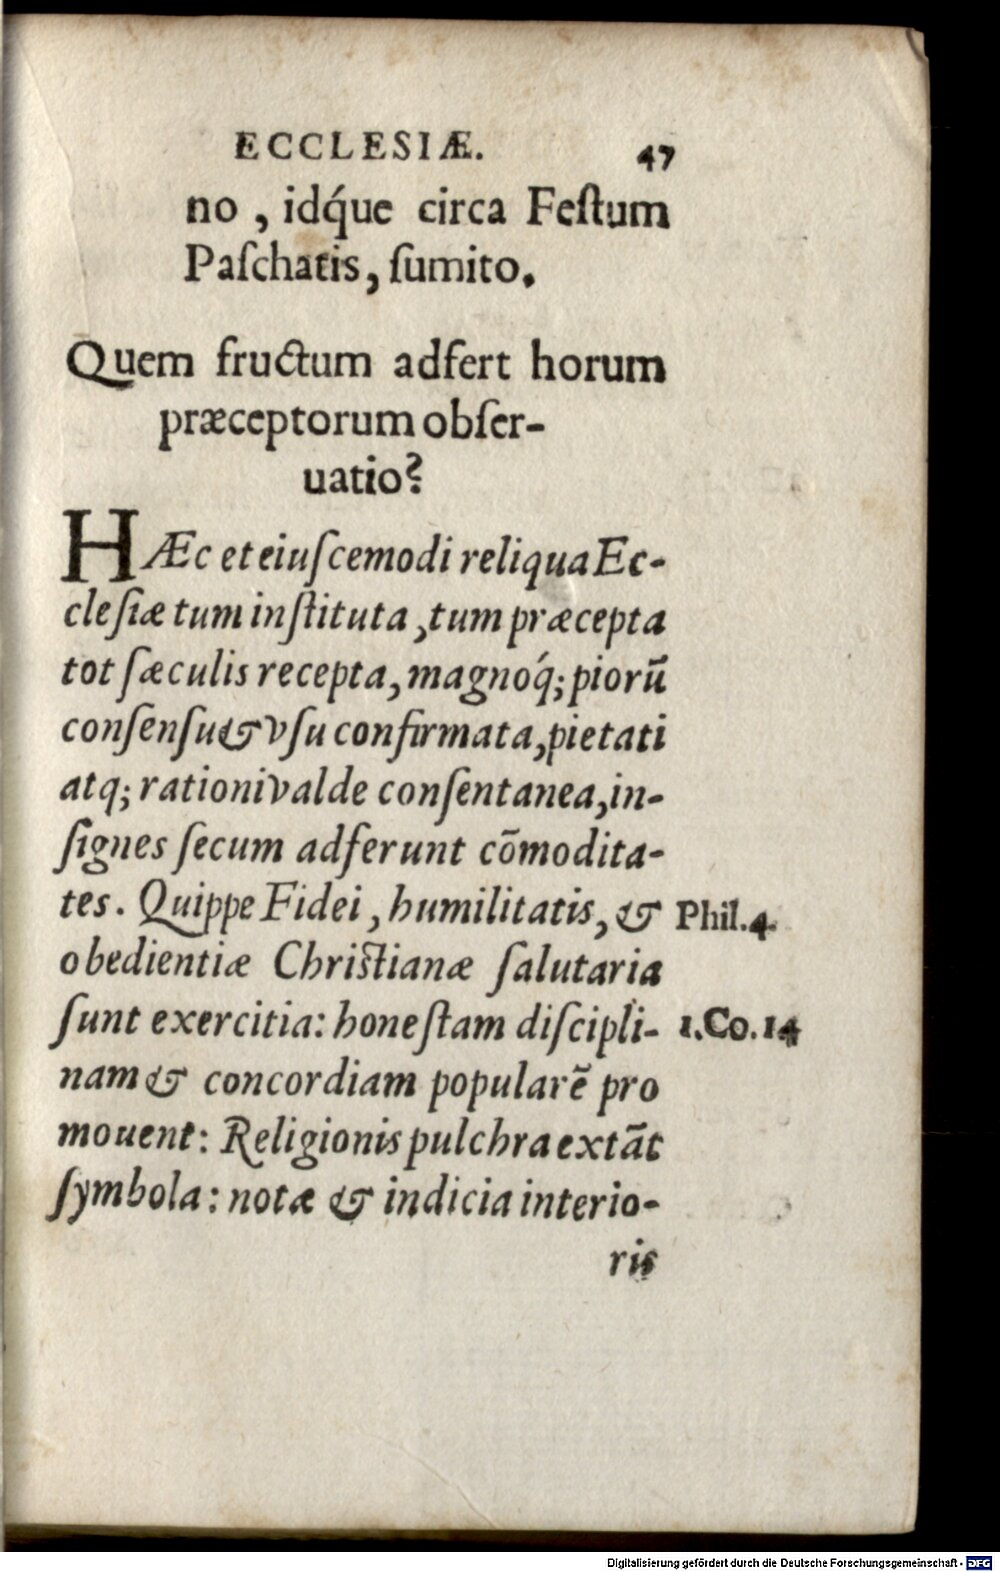 ECCLESIÆ. 47
no , idq́ue circa Feſtum
Paſchatis, ſumito.
Quem fructum adfert horum
præceptorum obſer-
uatio?
HÆc et eiuſcemodi reliqua Ec-
cleſiæ tum inſtituta, tum præcepta
tot ſæculis recepta, magnoq́; piorũ
conſenſu & vſu confirmata, pietati
atq; rationi valde conſentanea, in-
ſignes ſecum adferunt cõmodita-
tes. Quippe Fidei, humilitatis, & Phil.4.
obedientiæ Chriſtianæ ſalutaria
ſunt exercitia: honeſtam diſcipli- 1.Co.14
nam & concordiam popularẽ pro
mouent: Religionis pulchra extãt
ſymbola: notæ & indicia interio-
ris
Digitalisierung gefördert durch die Deutsche Forschungsgemeinschaft - DFG